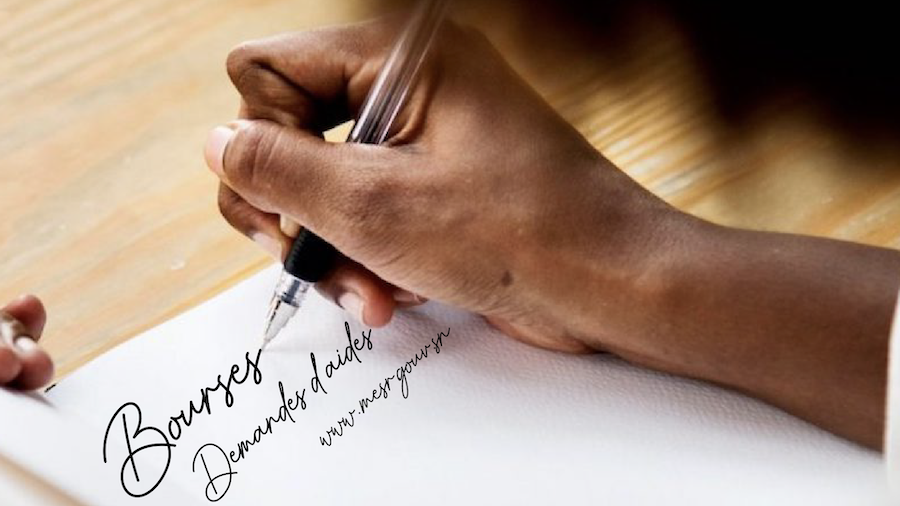 Bourses
Demandes d'aides
www.mesr.gouv.sn